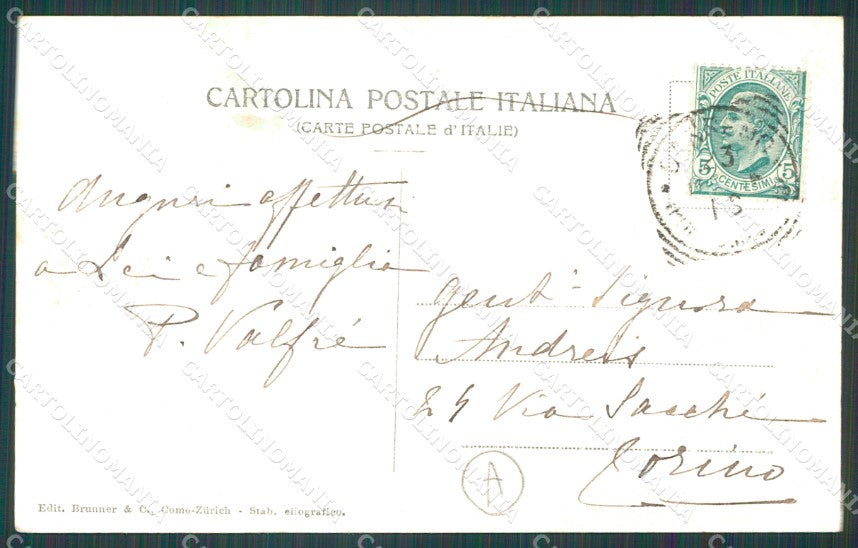 CARTOLINA POSTALE ITALIANA
(CARTE POSTALE d'ITALIE)
POSTE ITALIANE
5 5
CENTESIMI
3
Auguri affettuosi
a Lei e famiglia
P. Valfré
Gent. Signora
Andreis
24 Via Sacchi
Torino
A
Edit. Brunner & C., Como-Zürich - Stab. eliografico.
CARTOLINOMANIA